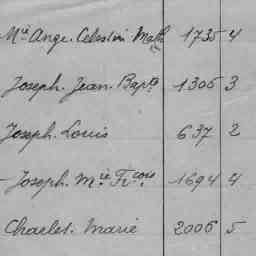 Mie Ange. Celestin Math 1735 4
Joseph. Jean. Bapte 1306 3
Joseph. Louis 637 2
Joseph. Mie Fcois. 1694 4
Charles. Marie 2006 5